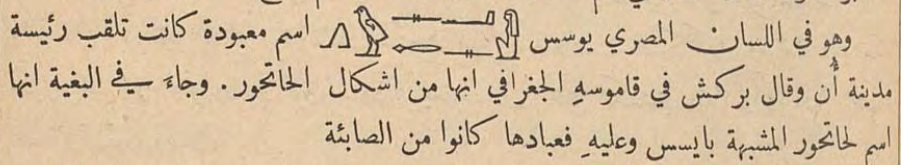 وهو في اللسان المصري يوسس اسم معبودة كانت تلقب رئيسة
مدينة أن وقال بركش في قاموسهِ الجغرافي انها من اشكال الحاتحور . وجاءَ في البغية انها
اسم لحاتحور المشبهة بايسس وعليهِ فعبادها كانوا من الصابئة